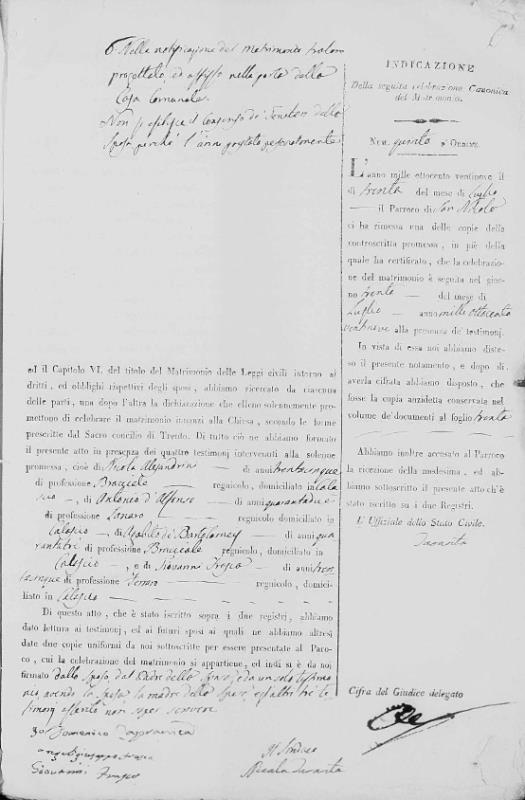 6. Nella notificazione del matrimonio
progettato, ed affisso nella porta della
Casa Comunale.
Non si esibisce il Consenso di della
Sposa perchè l'anno prestato
ed il Capitolo VI. del titolo del Matrimonio delle Leggi civili intorno ai
dritti, ed obblighi rispettivi degli sposi, abbiamo ricercato da ciascuna
delle parti, una dopo l'altra la dichiarazione che elleno solennemente pro-
mettono di celebrare il matrimonio innanzi alla Chiesa, secondo le forme
prescritte dal Sacro concilio di Trento. Di tutto ciò ne abbiamo formato
il presente atto in presenza dei quattro testimonj intervenuti alla solenne
promessa, cioè di Nicola Alejandrini — di anni trentacinque
di professione Bracciale regnicolo, domiciliato in Cala
scio —, di Antonio d'Alfonso — di anni quarantadue
di professione Lanaro — regnicolo domiciliato in
Calascio — di Ippolito di Bartolomeo — di anni qua
rantitri di professione Bracciale regnicolo, domiciliato in
Calascio —, e di Giovanni Frasca — di anni tren
tacinque di professione Ferraro — regnicolo, domici-
liato in Calascio —
Di questo atto, che è stato iscritto sopra i due registri, abbiamo
dato lettura ai testimonj, ed ai futuri sposi ai quali ne abbiamo altresì
date due copie uniformi da noi sottoscritte per essere presentate al Paro-
co, cui la celebrazione del matrimonio si appartiene, ed indi si è da noi
firmato dallo Sposo, dal Padre dello Sposo, e da un solo testimo
nio, avendo la Sposa la madre dello Sposo, ed altri tre te
stimonj asserito non saper scrivere
Domenico
Giovanni Frasca
Il Sindaco
Nicola Taranta
INDICAZIONE
Della seguita celebrazione Canonica
del Matrimonio.
Num. quinto d'Ordine.
L'anno mille ottocento ventinove il
di trenta del mese di Luglio
— il Parroco di San Nicola
ci ha rimessa una delle copie della
controscritta promessa, in piè della
quale ha certificato, che la celebrazio-
ne del matrimonio è seguita nel gior-
no trenta — del mese di
Luglio — anno mille ottocento
ventinove alla presenza de' testimonj.
In vista di essa noi abbiamo diste-
so il presente notamento, e dopo di
averla cifrata abbiamo disposto, che
fosse la copia anzidetta conservata nel
volume de' documenti al foglio trenta
Abbiamo inoltre accusato al Parroco
la ricezione della medesima, ed ab-
biamo sottoscritto il presente atto ch'è
stato iscritto su i due Registri.
L'Uffiziale dello Stato Civile.
Taranta
Cifra del Giudice delegato